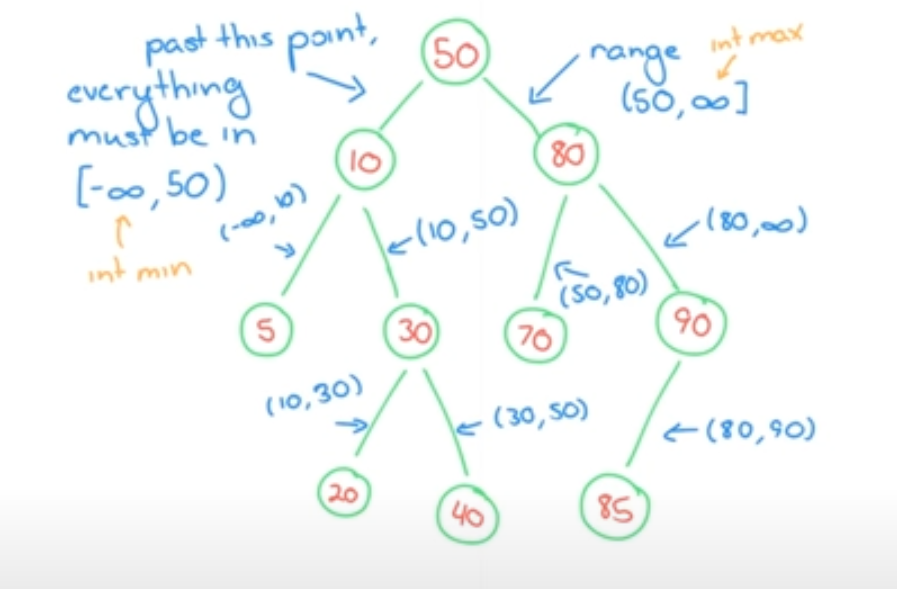 past this point,
everything
must be in
[-∞, 50)
int min
50
range
int max
(50, ∞]
10
80
(-∞, 10)
(10, 50)
(50, 80)
(80, ∞)
5
30
70
90
(10, 30)
(30, 50)
(80, 90)
20
40
85